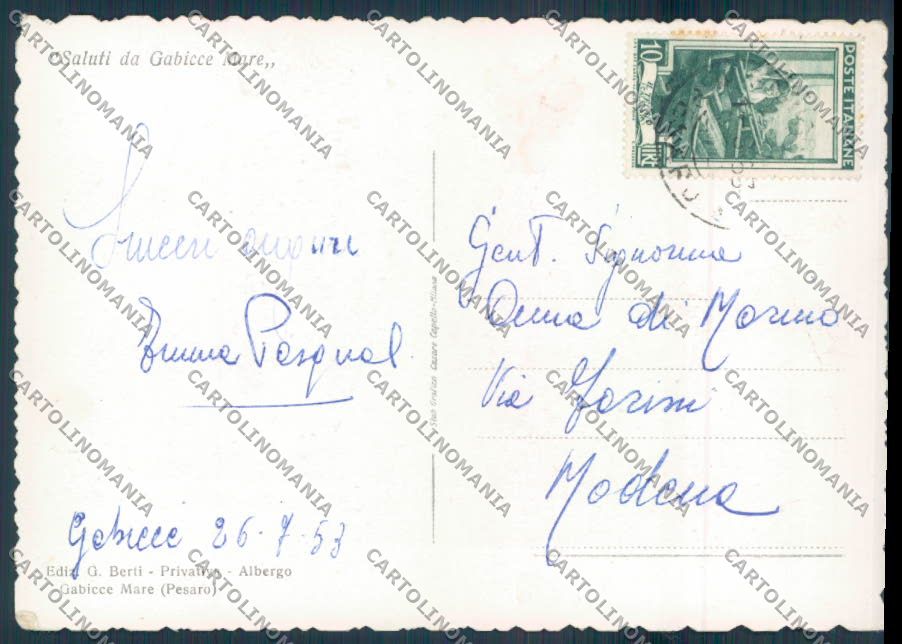 "Saluti da Gabicce Mare„
Sinceri auguri
Emma Pasqual.
Gabicce 26-7-53
Ediz. G. Berti - Privativa - Albergo
Gabicce Mare (Pesaro)
Stab. Grafico Cesare Capello-Milano
POSTE ITALIANE
10
LIRE
Gent. Signorina
Anna di Marino
Via Farini
Modena
CARTOLINOMANIA